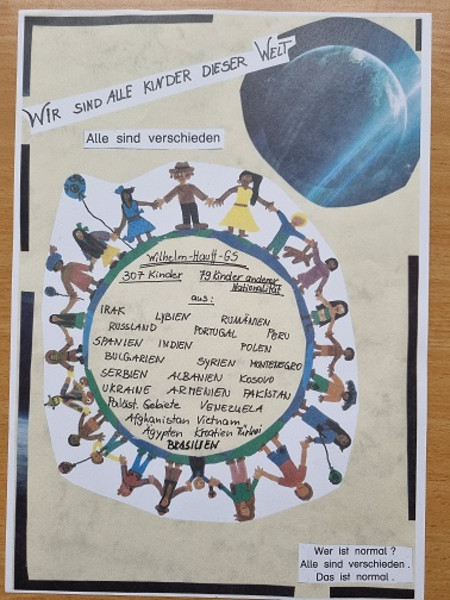 WIR SIND ALLE KINDER DIESER WELT
Alle sind verschieden
Wilhelm-Hauff-GS
307 Kinder 79 Kinder anderer
Nationalität
aus:
IRAK LYBIEN RUMÄNIEN
RUSSLAND PORTUGAL PERU
SPANIEN INDIEN POLEN
BULGARIEN SYRIEN MONTENEGRO
SERBIEN ALBANIEN KOSOVO
UKRAINE ARMENIEN PAKISTAN
Paläst. Gebiete VENEZUELA
Afghanistan Vietnam
Ägypten Kroatien Türkei
BRASILIEN
Wer ist normal?
Alle sind verschieden.
Das ist normal.